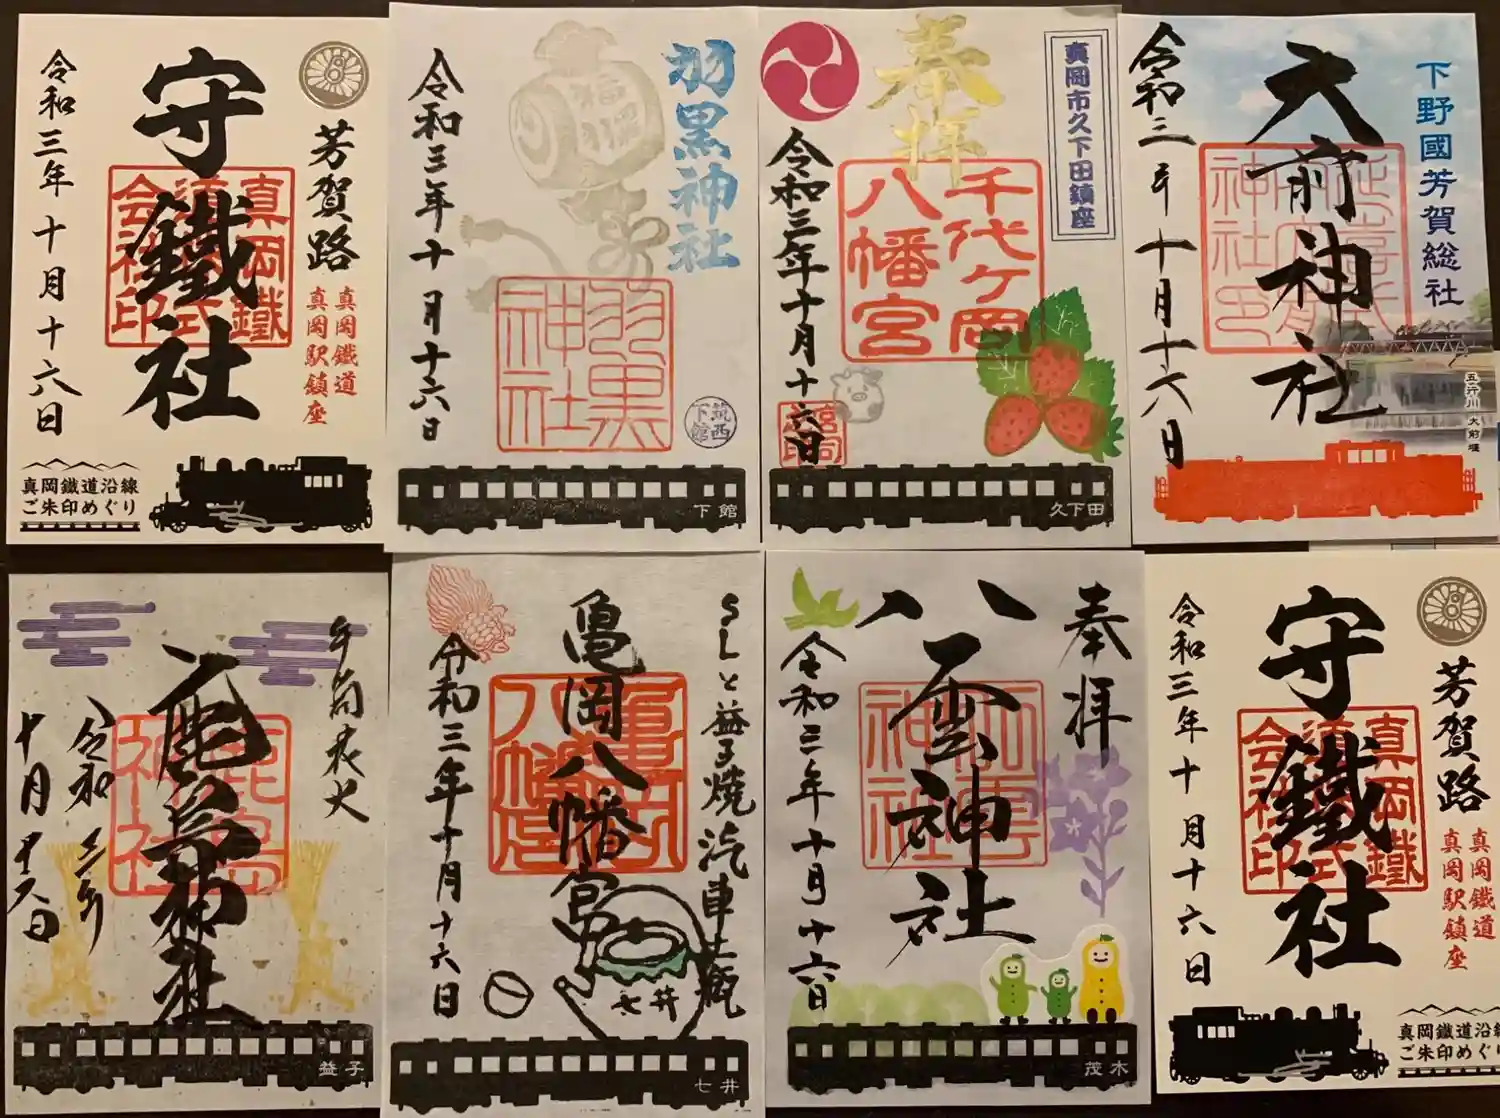 芳賀路
真岡鐵道
真岡駅鎮座
守鐵社
真岡鐵
会社印
令和三年十月十六日
真岡鐵道沿線
ご朱印めぐり
羽黒神社
羽黒
神社
令和三年十月十六日
筑西
下館
下館
真岡市久下田鎮座
奉拝
千代ケ岡
八幡宮
令和三年十月十六日
久下田
下野國芳賀総社
大前神社
神社
令和三年十月十六日
五行川 大前堰
手筒花火
鹿島神社
令和三年
十月十六日
益子
SLと益子焼汽車土瓶
亀岡八幡宮
亀岡
八幡宮
令和三年十月十六日
七井
七井
奉拝
八雲神社
八雲
神社
令和三年十月十六日
茂木
芳賀路
真岡鐵道
真岡駅鎮座
守鐵社
真岡鐵
会社印
令和三年十月十六日
真岡鐵道沿線
ご朱印めぐり